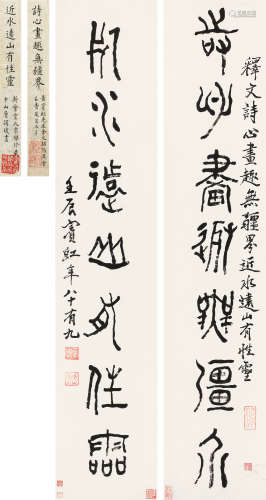 釋文詩心畫趣無疆界近水遠山有性靈
詩心畫趣無疆界
近水遠山有性靈
壬辰賓虹年八十有九
詩心畫趣無疆界
近水遠山有性靈